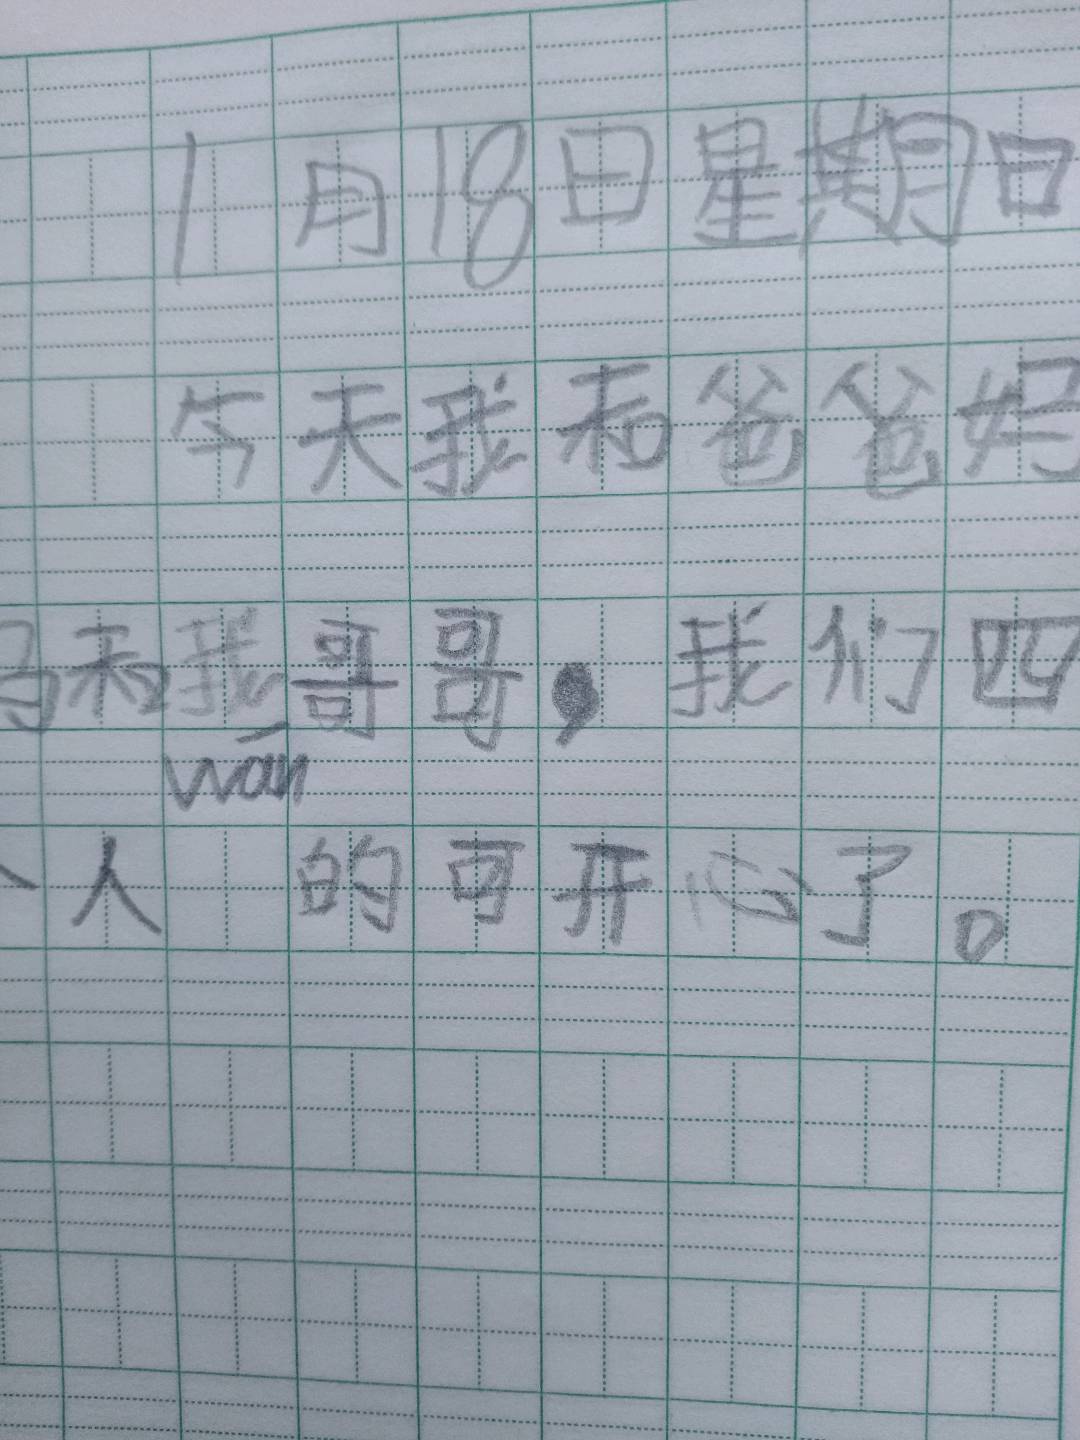 1月18日星期日
今天我和爸爸好
妈和我哥哥，我们四
wán
个人 的可开心了。